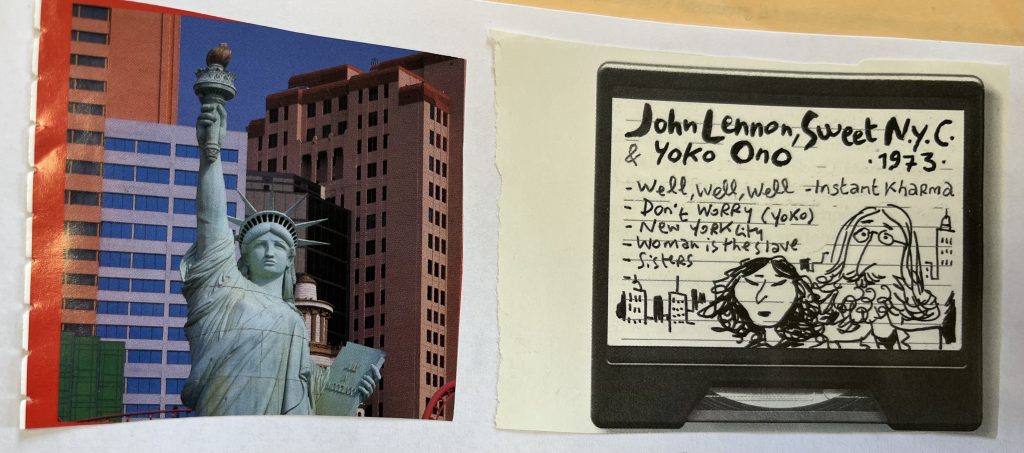 John Lennon, Sweet N.Y.C.
& Yoko Ono · 1973 ·
- Well, Well, Well - Instant Kharma
- Don't Worry (Yoko)
- New York City
- Woman is the slave
- Sisters